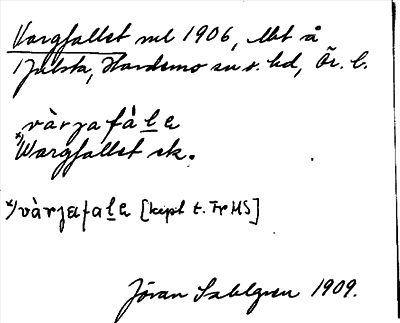 Vargfallet ml 1906, Mbt å
Hjälsta, Hardemo sn o. hd, Ör. l.
*) vàrjafàl̲e
Wargfallet sk.
*) vàrjafal̲e [kopl t. Fr HS]
Jöran Sahlgren 1909.